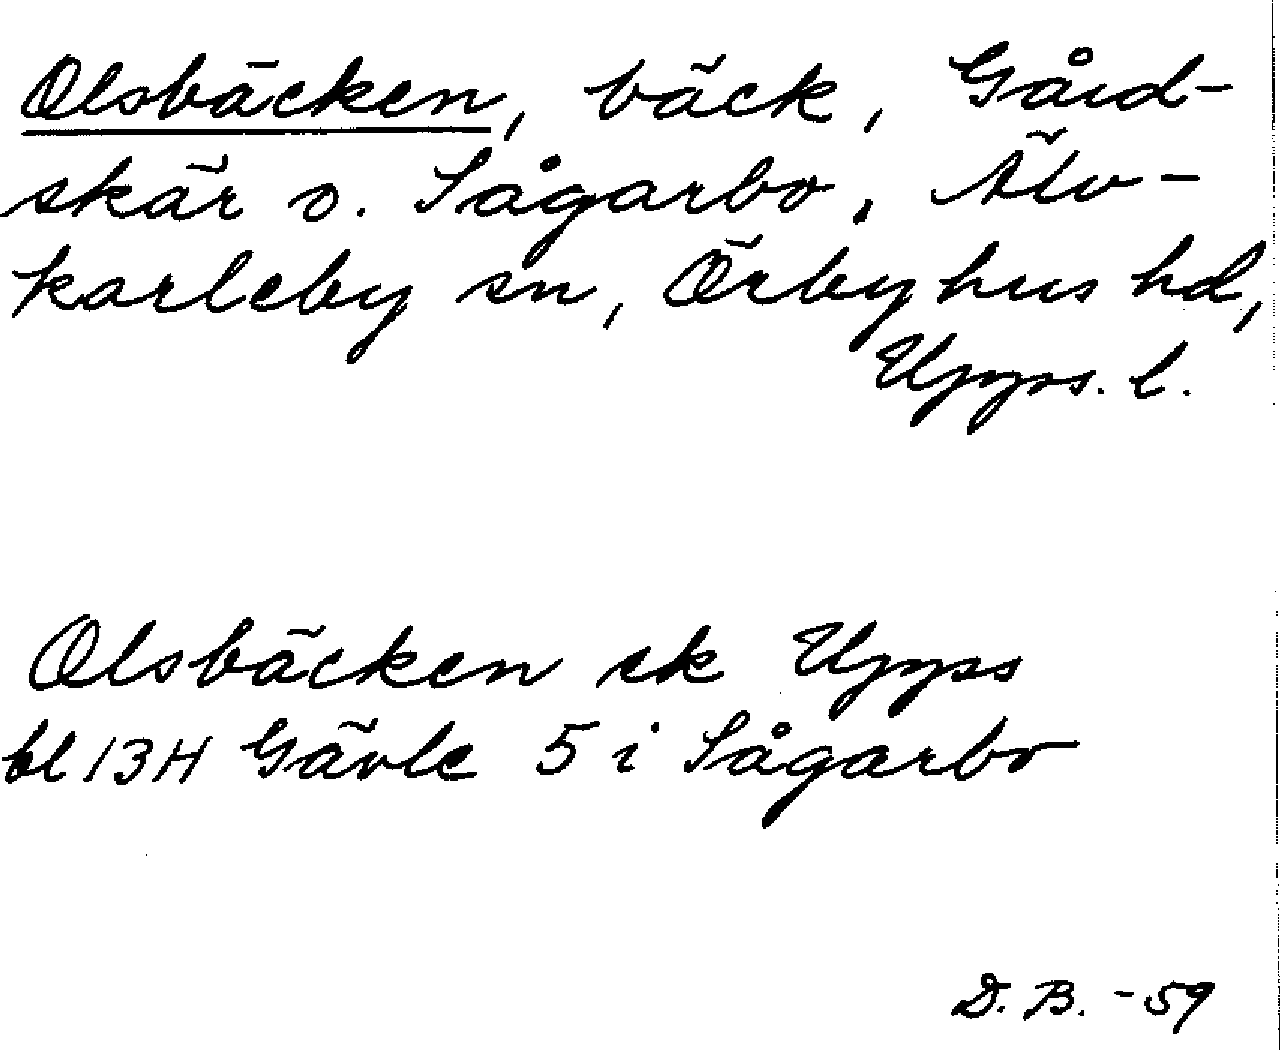 Olsbäcken, bäck, Gård-
skär o. Sågarbo, Älv-
karleby sn, Örbyhus hd,
Upps. l.
Olsbäcken ek Upps
bl 13H Gävle 5 i Sågarbo
D. B. - 59